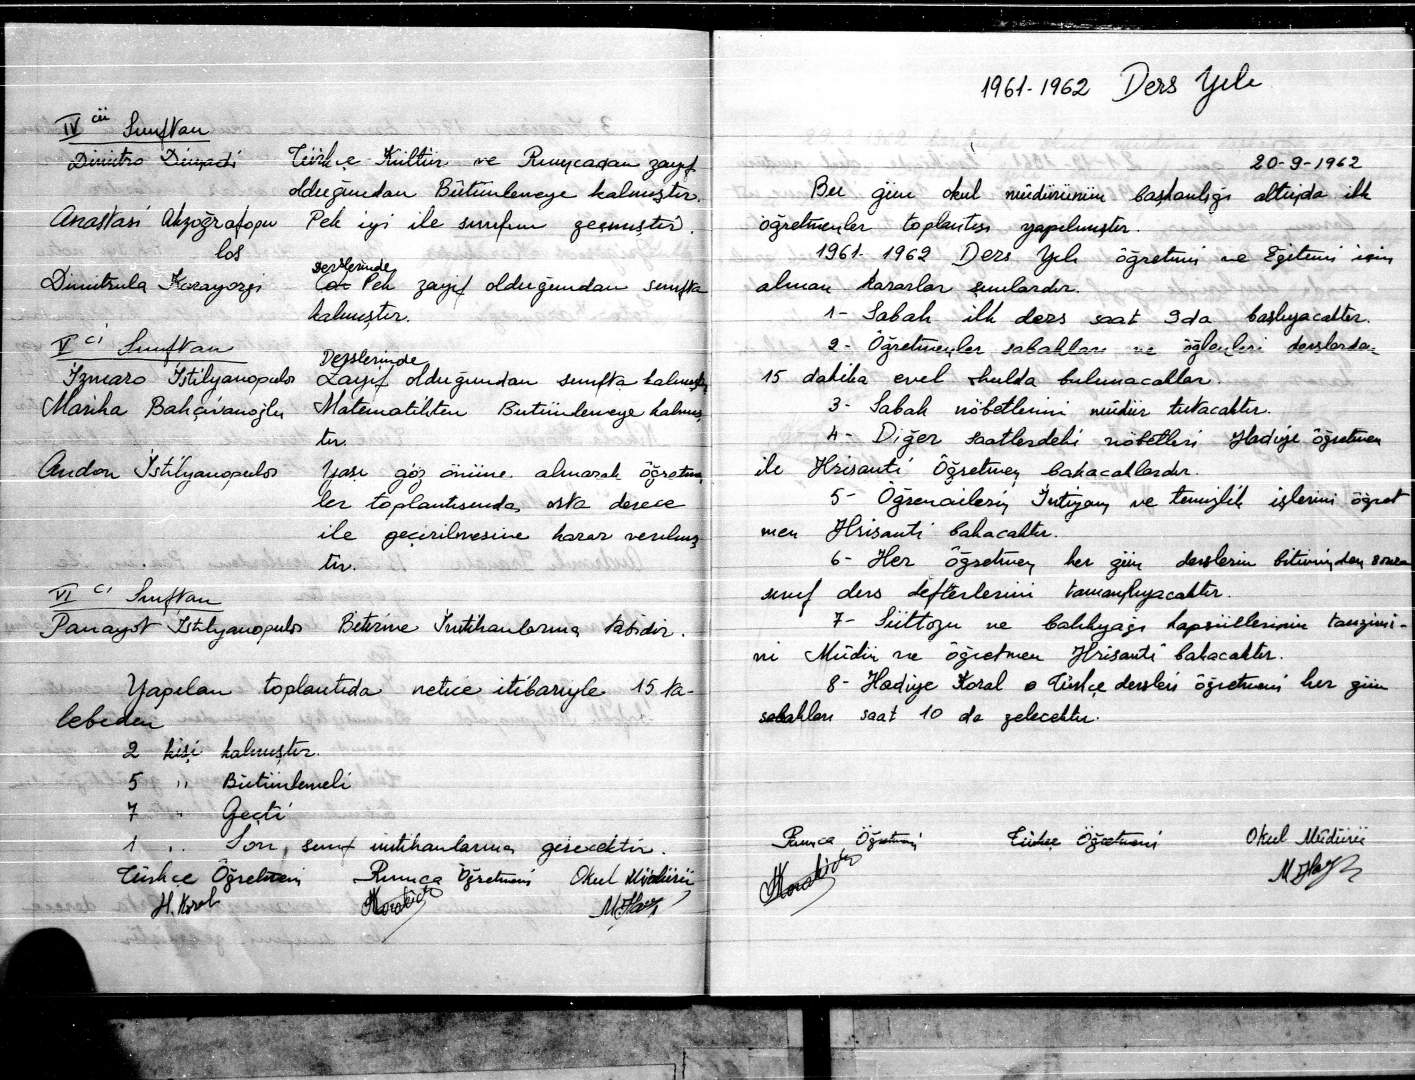 IV cü Sınıftan
Dimitro Dimyadi Türkçe Kültür ve Rumcadan zayıf
olduğundan Bütünlemeye kalmıştır.
Anastasi Akzoğrafopu Pek iyi ile sınıfını geçmiştir.
los
derslerinde
Dimitrula Karayorgi Pek zayıf olduğundan sınıfta
kalmıştır.
V ci Sınıftan
Derslerinde
İzmaro İstilyanopulos Zayıf olduğundan sınıfta kalmıştır
Marika Bahçivanoğlu Matematikten Bütünlemeye kalmış
tır.
Andon İstilyanopulos Yaşı göz önüne alınarak öğretmen
ler toplantısında orta derece
ile geçirilmesine karar verilmiş
tir.
VI cı Sınıftan
Panayot İstilyanopulos Bitirme İmtihanlarına tabidir.
Yapılan toplantıda netice itibariyle 15 ta-
lebeden
2 kişi kalmıştır.
5 " Bütünlemeli
7 " Geçti
1 " Son sınıf imtihanlarına girecektir.
Türkçe Öğretmeni Rumca Öğretmeni Okul Müdürü
H. Koral
1961-1962 Ders Yılı
20-9-1962
Bu gün okul müdürünün başkanlığı altında ilk
öğretmenler toplantısı yapılmıştır.
1961-1962 Ders Yılı öğretimi ve Eğitimi için
alınan kararlar şunlardır.
1- Sabah ilk ders saat 9da başlıyacaktır.
2- Öğretmenler sabahları ve öğlenleri derslerden
15 dakika evel okulda bulunacaklar.
3- Sabah nöbetlerini müdür tutacaktır.
4- Diğer saatlerdeki nöbetleri Hadiye öğretmen
ile Hrisanti Öğretmen bakacaklardır.
5- Öğrencilerin İntizam ve temizlik işlerini öğret
men Hrisanti bakacaktır.
6- Her öğretmen her gün derslerin bitiminden sonra
sınıf ders defterlerini tamamlıyacaktır.
7- Süttozu ve balıkyağı kapsüllerinin tanzimi-
ni Müdür ve öğretmen Hrisanti bakacaktır.
8- Hadiye Koral Türkçe dersleri öğretmeni her gün
sabahları saat 10 da gelecektir.
Rumca Öğretmeni Türkçe Öğretmeni Okul Müdürü